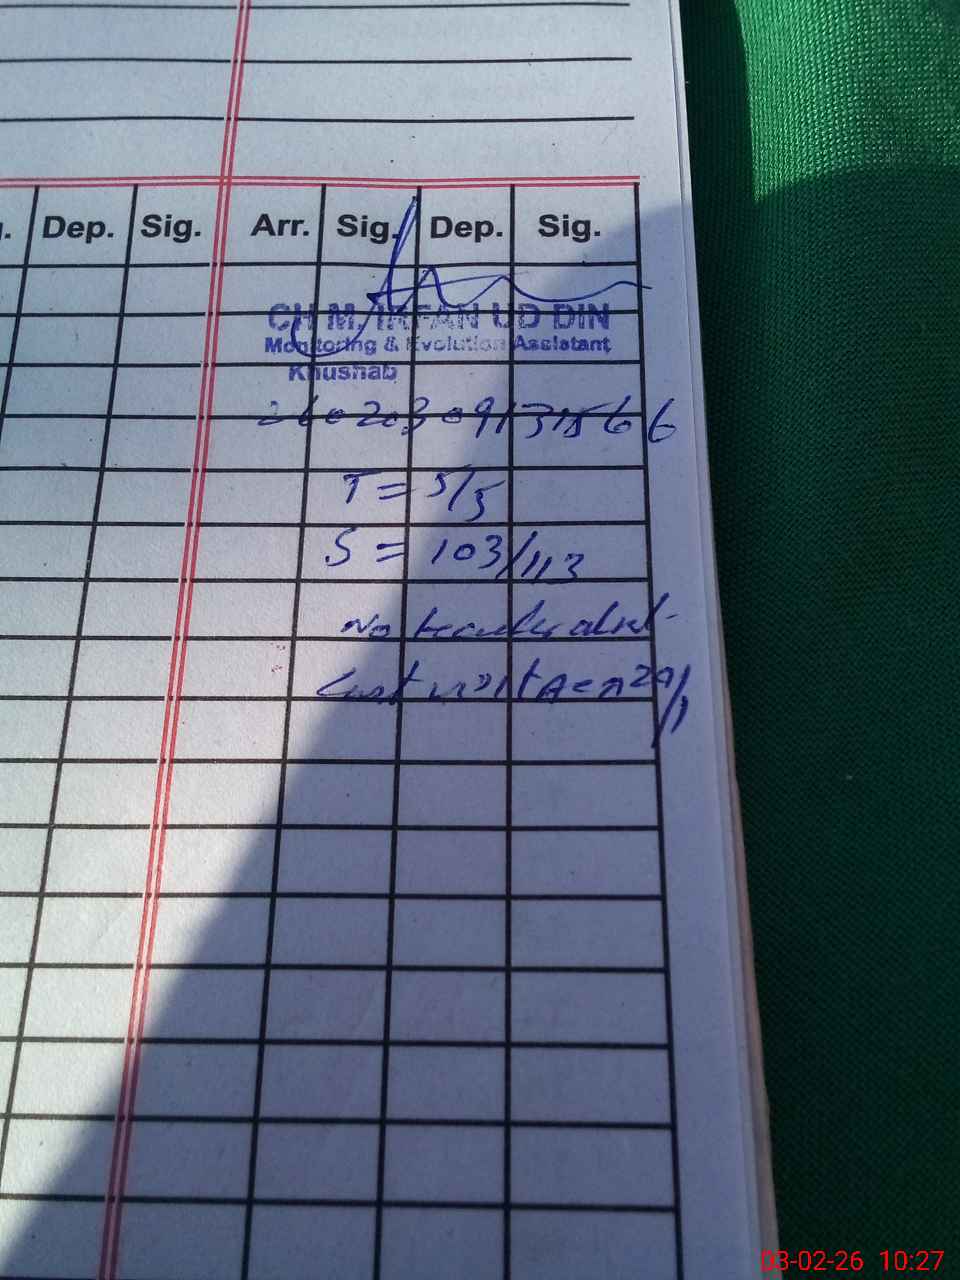 Dep. Sig. Arr. Sig. Dep. Sig.
CH M. IRFAN UD DIN
Monitoring & Evolution Assistant
Khushab
T = 5/5
S = 103/113
No
Last visit AEO 29/1
03-02-26 10:27